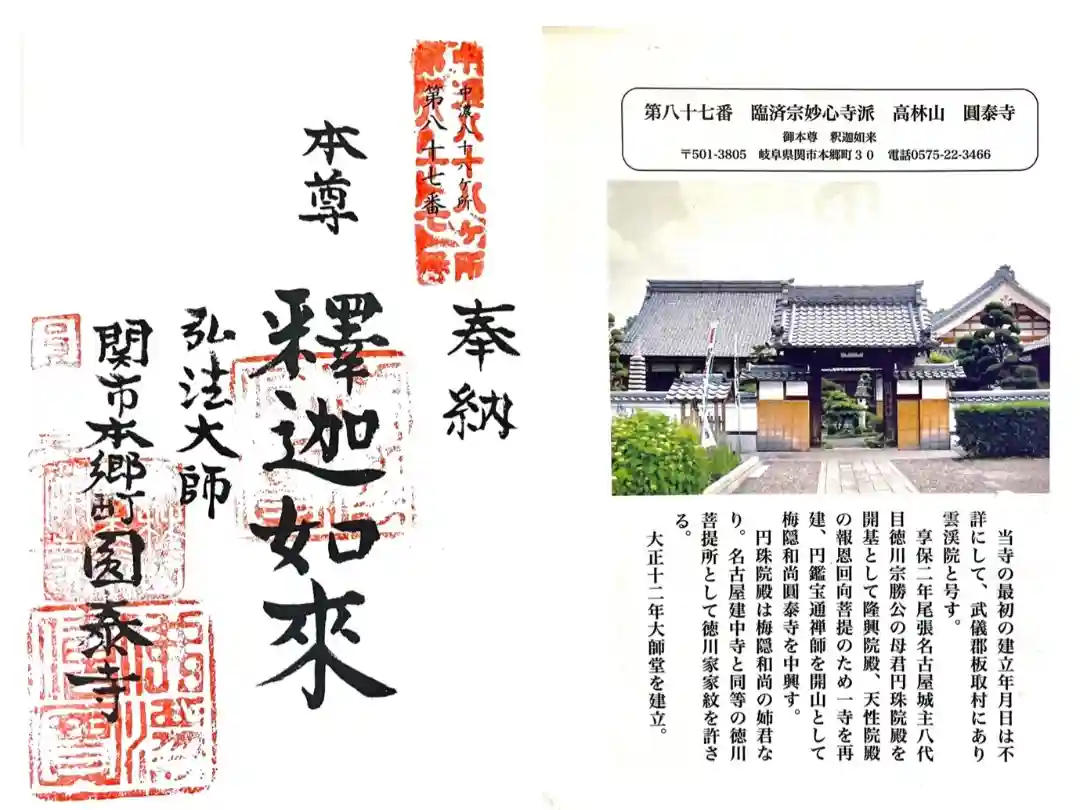 中濃八十八ヶ所
第八十七番
奉納
本尊
釋迦如來
弘法大師
関市本郷町圓泰寺
第八十七番 臨済宗妙心寺派 高林山 圓泰寺
御本尊 釈迦如来
〒501-3805 岐阜県関市本郷町30 電話0575-22-3466
当寺の最初の建立年月日は不
詳にして、武儀郡板取村にあり
雲渓院と号す。
享保二年尾張名古屋城主八代
目徳川宗勝公の母君円珠院殿を
開基として隆興院殿、天性院殿
の報恩回向菩提のため一寺を再
建、円鑑宝通禅師を開山として
梅隠和尚圓泰寺を中興す。
円珠院殿は梅隠和尚の姉君な
り。名古屋建中寺と同等の徳川
菩提所として徳川家家紋を許さ
る。
大正十二年大師堂を建立。